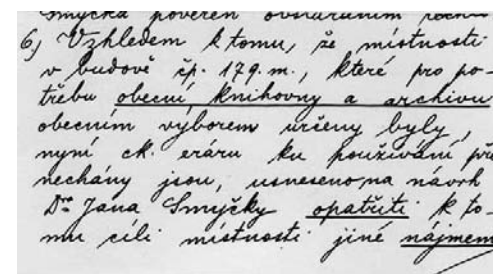 Smyčka pověřen obstaráním
6.) Vzhledem k tomu, že místnosti
v budově čp. 179. m., které pro po-
třebu obecní knihovny a archivu
obecním výborem určeny byly,
nyní ck. eráru ku používání pře
nechány jsou, usneseno na návrh
Dra Jana Smyčky opatřiti k to-
mu cíli místnosti jiné nájmem